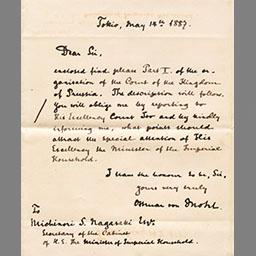 Tokio, May 14th 1887.
Dear Sir,
enclosed find please Part I. of the or-
ganisation of the Court of the Kingdom
of Prussia. The description will follow.
You will oblige me by reporting to
His Excellency Count Ito and by kindly
informing me, what points should
attract the special attention of His
Excellency the Minister of the Imperial
Household.
I have the honour to be, Sir,
yours very truly
Ottmar von Mohl
To
Michinori S. Nagasaki Esqr.
Secretary of the Cabinet
of H. E. the Minister of Imperial Household.